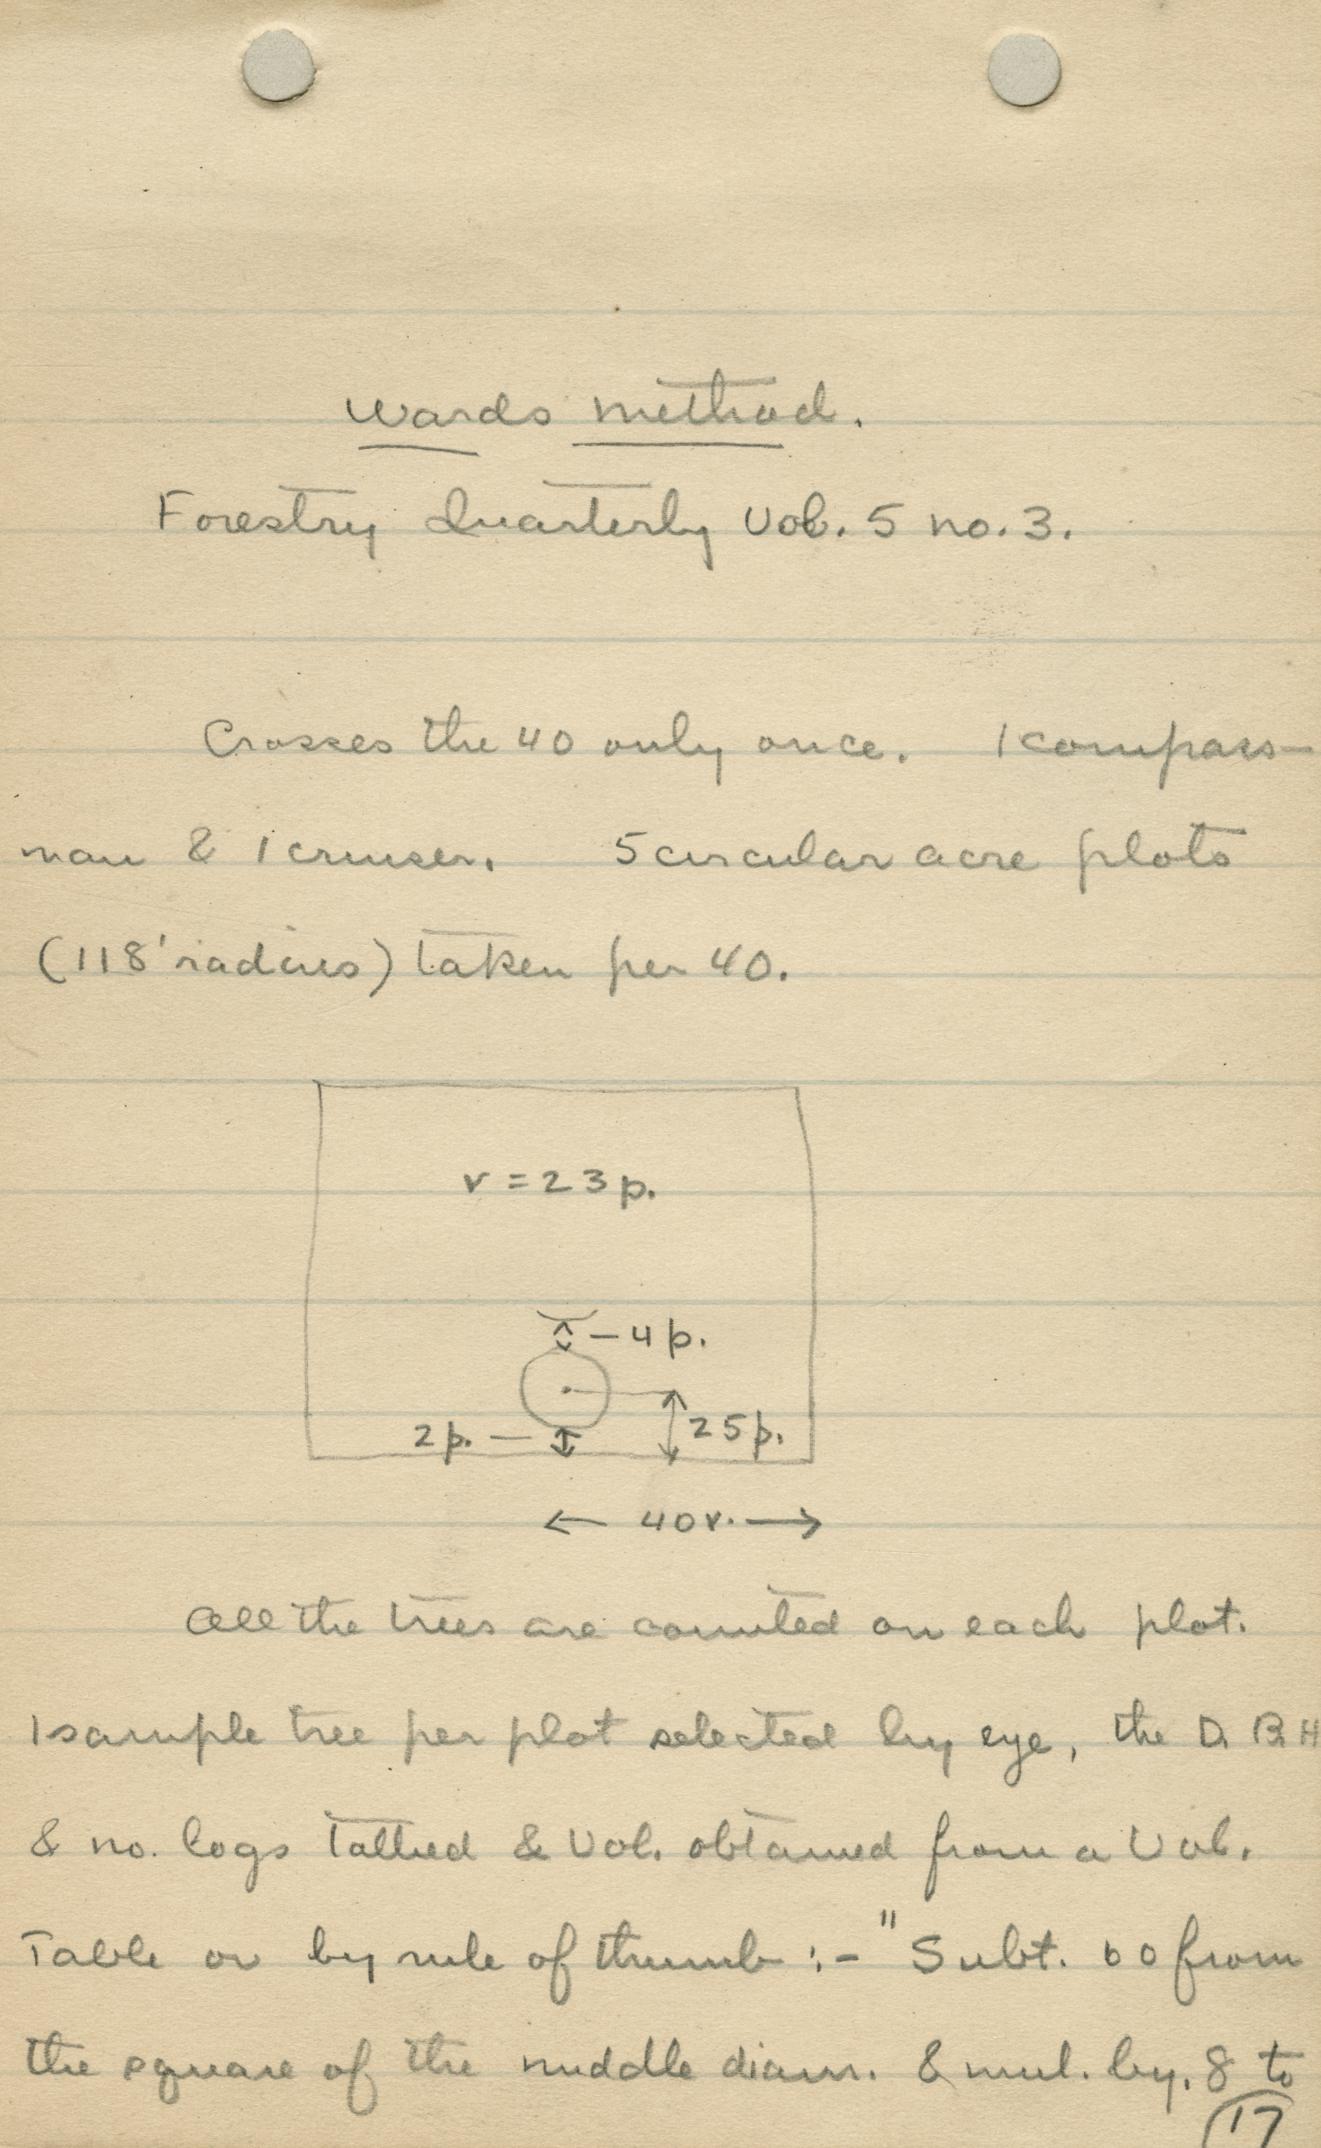 Wards method.
Forestry Quarterly Vol. 5 no. 3.
Crosses the 40 only once. 1 compass-
man & 1 cruiser. 5 circular acre plots
(118' radius) taken per 40.
r = 23 p.
- 4 p.
2 p. -
25 p.
← 40 r. →
All the trees are counted on each plot.
1 sample tree per plot selected by eye, the D. B. H
& no. logs tallied & Vol. obtained from a Vol.
Table or by rule of thumb :- "Subt. 60 from
the square of the middle diam. & mul. by .8 to
17